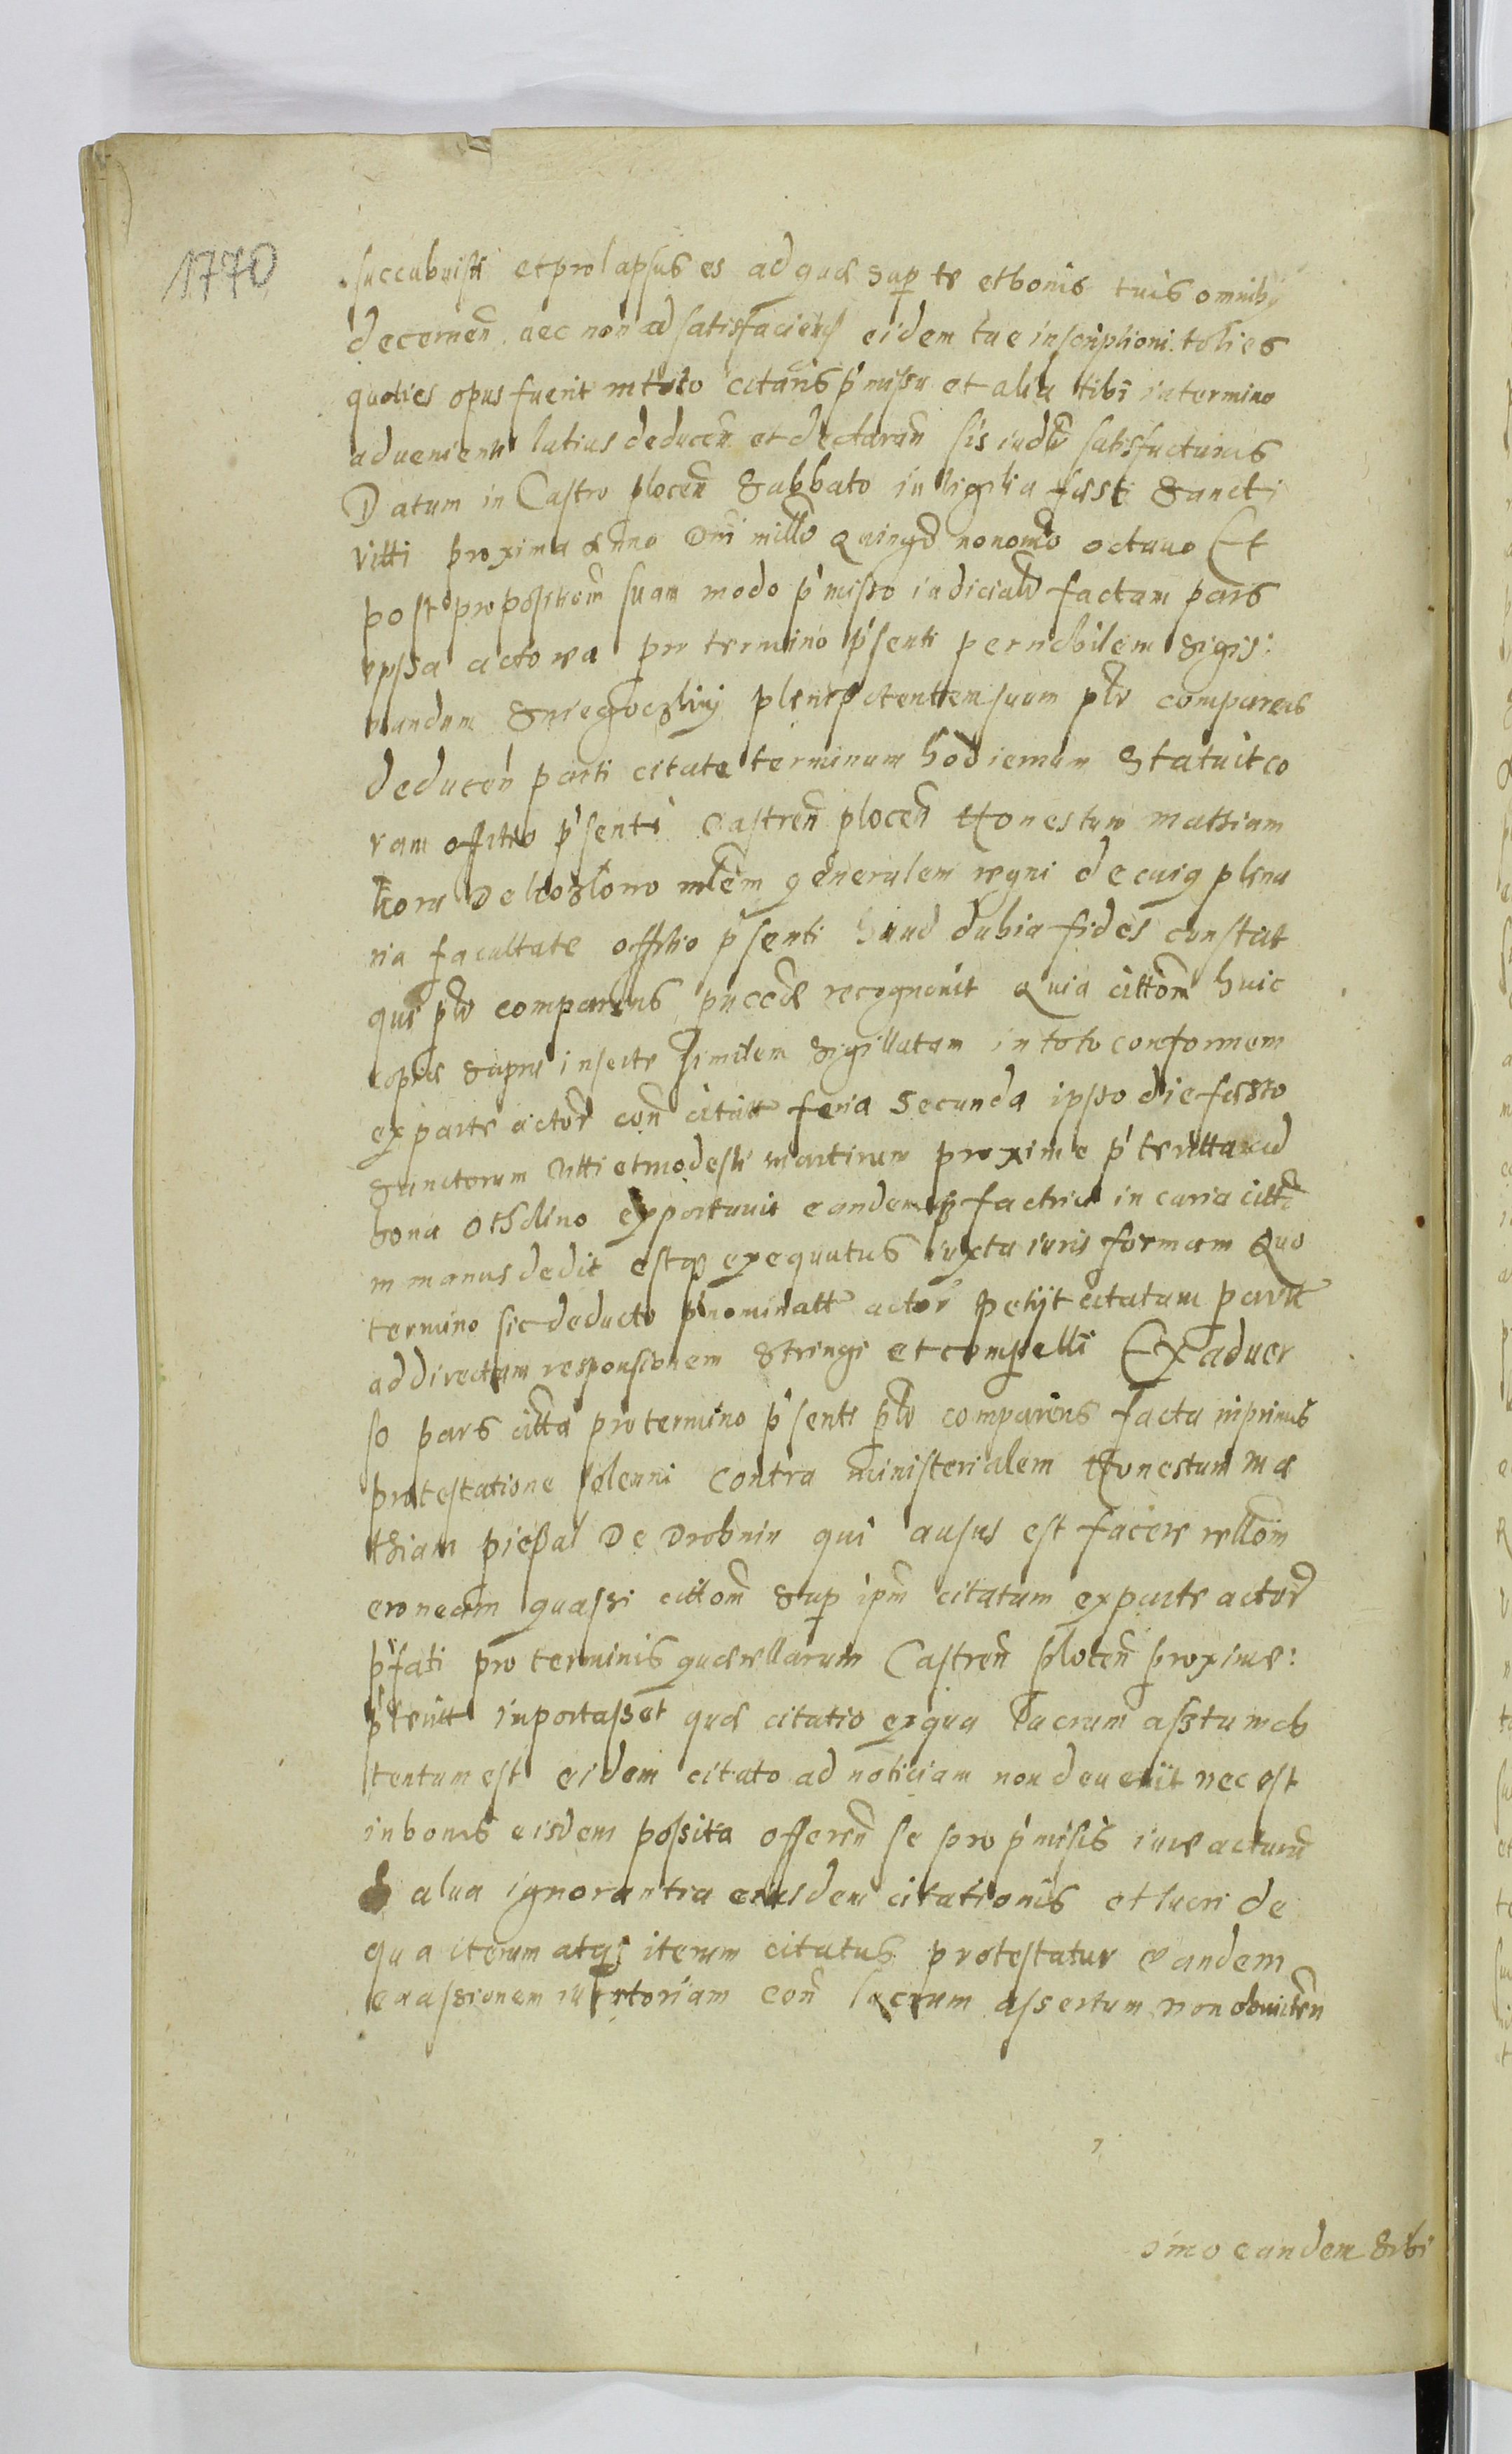 1770
succubuisti et prolapsus es ad quae sup te et bonis tuis omnib
decernen nec non ad satisfaciend eidem tue inscriptioni toties
quoties opus fuerit citans p'missa et alia tibi in termino
advenienti latius deducen et declaran sis iudr satisfacturus
Datum in Castro plocen Sabbato in vigilia festi Sancti
vitti proxima Anno Dni millo Quingo nonomo octavo Et
post propositionem suam modo p'misso iudicialr factam pars
ipsa actorea pro termino p'senti per nobilem Sigis:
mundum plenipotentem suum plr comparens
deducen parti citate terminum hodiernum Statuit co
ram offitio p'senti Castren plocen Honestum Mathiam
de Kozlowo mlem generalem regni de cuig plena
ria facultate offitio p'senti haud dubia fides constat
qui plr comparens recognovit Quia cittom huic
copiae Supra inserte Similem Sigillatam in toto conformem
ex parte actor con citat feria Secunda ipso die festo
Sanctorum Vitti et modesti martirum proxime p'teritta ad
bona exportavit eandemq in curia citt
in manus dedit estq exequutus iuxta iuris formam Quo
termino sic deducto p'nominatt actor Petijt citatam partt
ad directam responsionem Stringi et compelli Ex adver
so pars citta pro termino p'senti plr comparens facta inprimis
protestatione solenni Contra ministerialem Honestum Ma
thiam de Drobnin qui ausus est facere rellom
eroneam quassi cittom Sup ipm citatum ex parte actor
p'fati pro terminis querellarum Castren plocen proxime:
p'teritt inportasset quae citatio ex qua Lucrum
tentum est eidem citato ad noticiam non devenit nec est
in bonis eisdem possita offeren se pro p'missis iure acturum
Salva ignorantia eiusdem citationis et lucri de
qua iterum atq iterum citatus protestatur eandem
evassionem con lucrum assertum non
imo eandem Sibi